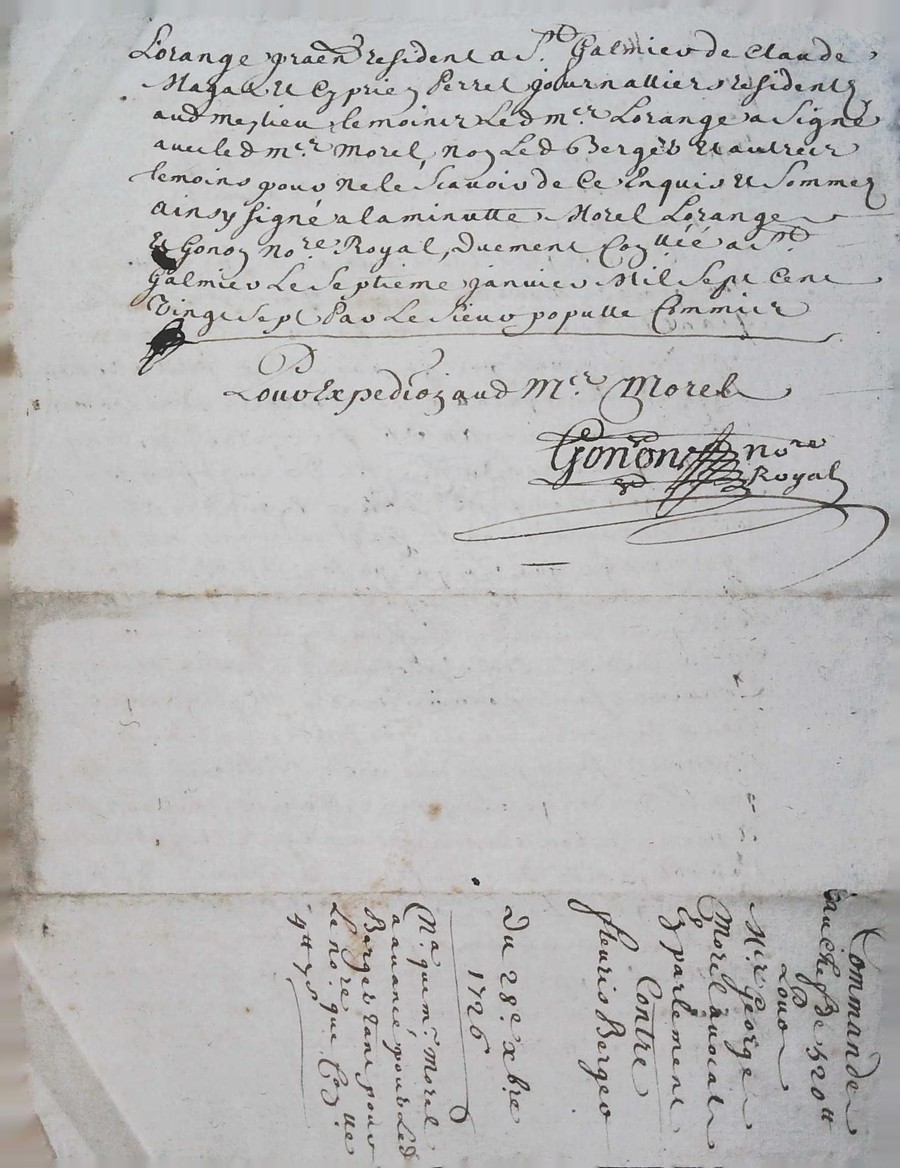 Lorange praen resident a St. Galmier de Claude
Magat Et Cyprien Perret journalliers residents
aud me lieu, temoins Led mer. Lorange a signé
avec led mer. Morel, non Led Berger Et autres
temoins pour ne le scavoir de ce Enquis Et sommez
ainsy signé a la minutte Morel Lorange
Et Gonon nore. Royal, Duement a St.
Galmier Le septieme janvier Mil sept cent
vingt sept Par Le sieur populle Commis
Pour Expedion aud Mer. Morel
Gonon nore
Royal
Commande
de 520tt
Pour
Mre George
Morel avocat
En parlement
Contre
fleuris Berger
Du 28e xbre
1726
Na que mr. Morel
a avancé pour Led
Berger tant pour
Le nore. que
4tt 7s